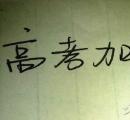 高考加